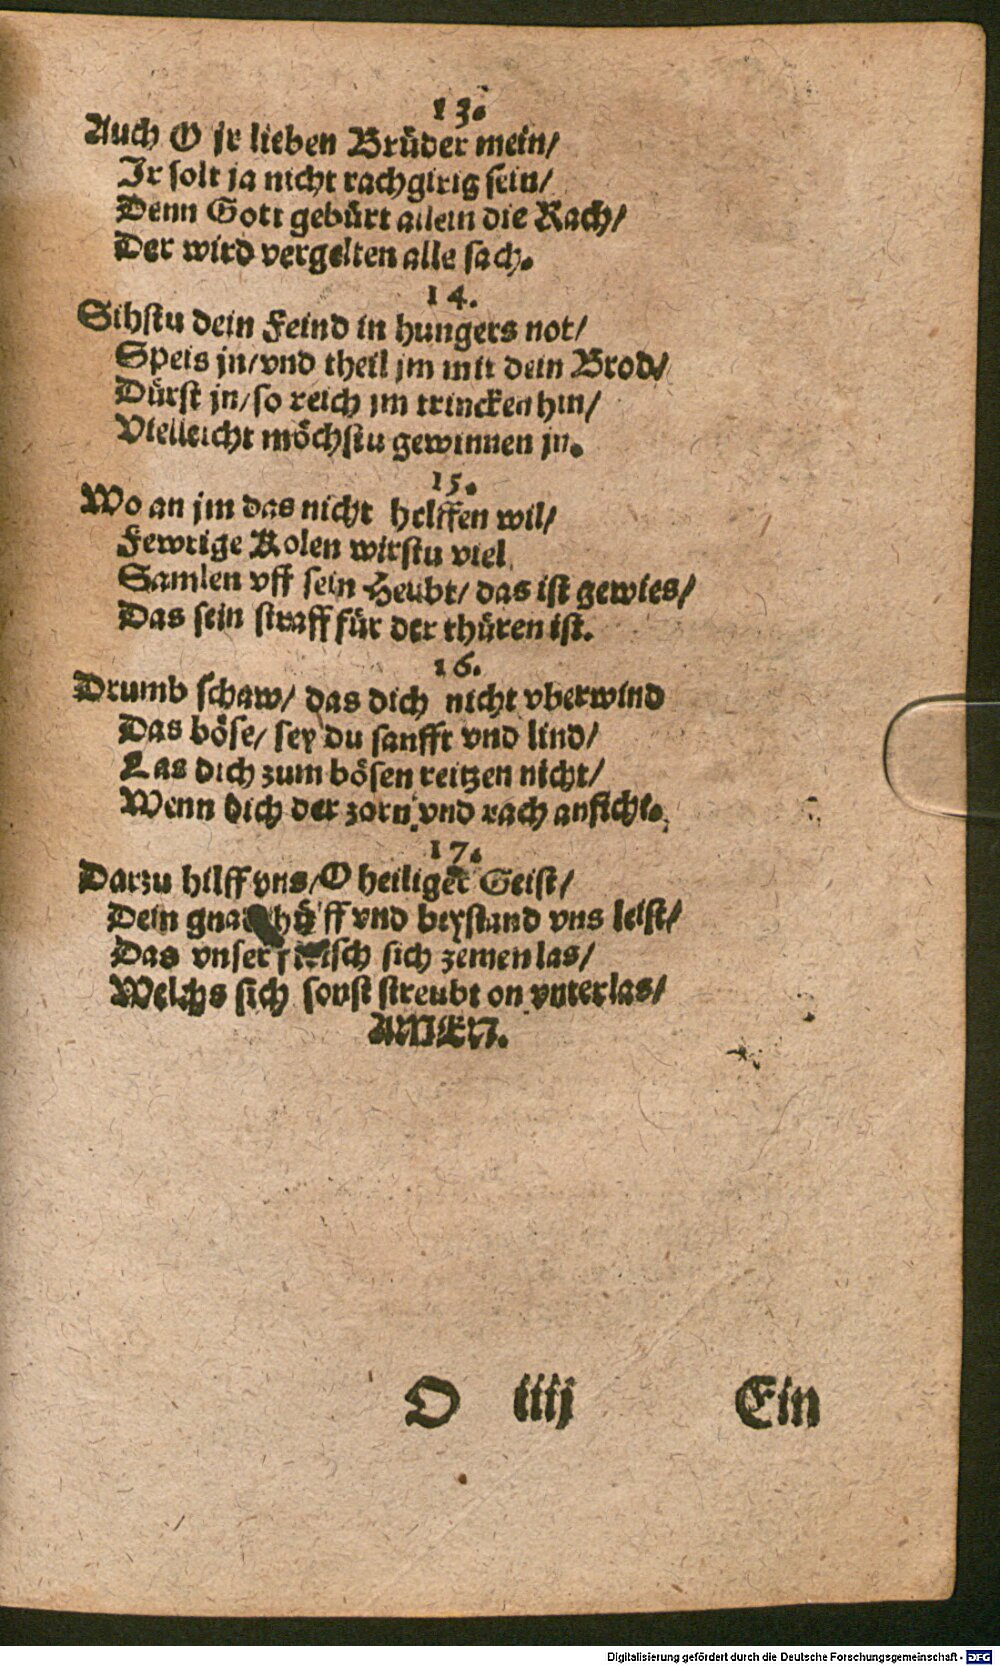 13.
Auch O jr lieben Brüder mein/
Ir solt ja nicht rachgirig sein/
Denn Gott gebürt allein die Rach/
Der wird vergelten alle sach.
14.
Sihstu dein Feind in hungers not/
Speis jn/vnd theil jm mit dein Brod/
Dürst jn/so reich jm trincken hin/
Vielleicht möchstu gewinnen jn.
15.
Wo an jm das nicht helffen wil/
Fewrige Kolen wirstu viel
Samlen vff sein Heubt/ das ist gewies/
Das sein straff für der thüren ist.
16.
Drumb schaw/ das dich nicht vberwind
Das böse/ sey du sanfft vnd lind/
Las dich zum bösen reitzen nicht/
Wenn dich der zorn vnd rach anficht.
17.
Darzu hilff vns/O heiliger Geist/
Dein vnd beystand vns leist/
Das vnser sich zemen las/
Welchs sich sonst streubt on vnterlas/
AMEN.
O iiij Ein
Digitalisierung gefördert durch die Deutsche Forschungsgemeinschaft - DFG